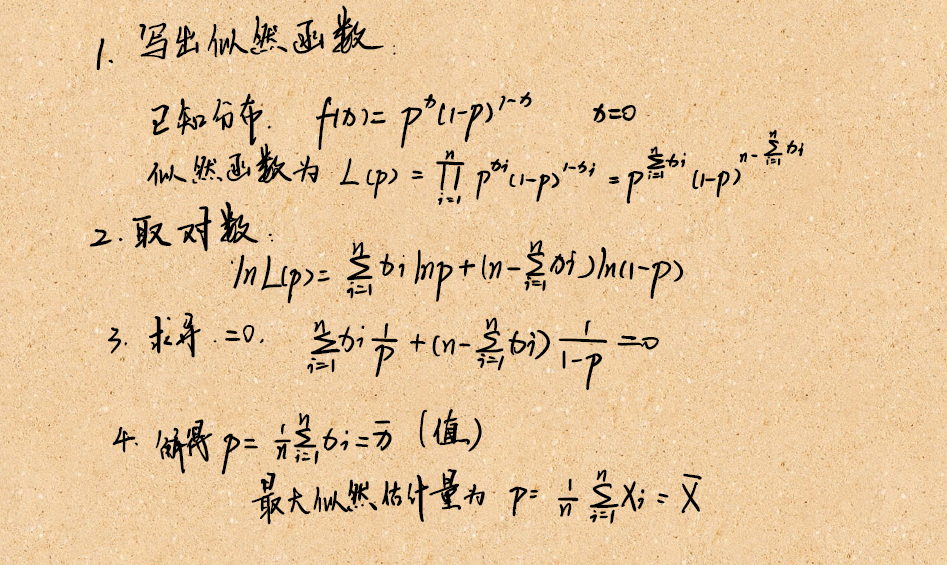 1. 写出似然函数:
已知分布. f(x)= p^x(1-p)^{1-x} x=0
似然函数为 L(p) = ∏_{i=1}^{n} p^{x_i}(1-p)^{1-x_i} = p^{∑_{i=1}^{n} x_i} (1-p)^{n-∑_{i=1}^{n} x_i}
2. 取对数:
ln L(p)= ∑_{i=1}^{n} x_i ln p + (n-∑_{i=1}^{n} x_i) ln(1-p)
3. 求导 =0. ∑_{i=1}^{n} x_i \frac{1}{p} + (n-∑_{i=1}^{n} x_i) \frac{1}{1-p} =0
4. 解得 p= \frac{1}{n} ∑_{i=1}^{n} x_i = \bar{x} (值)
最大似然估计量为 p= \frac{1}{n} ∑_{i=1}^{n} X_i = \bar{X}